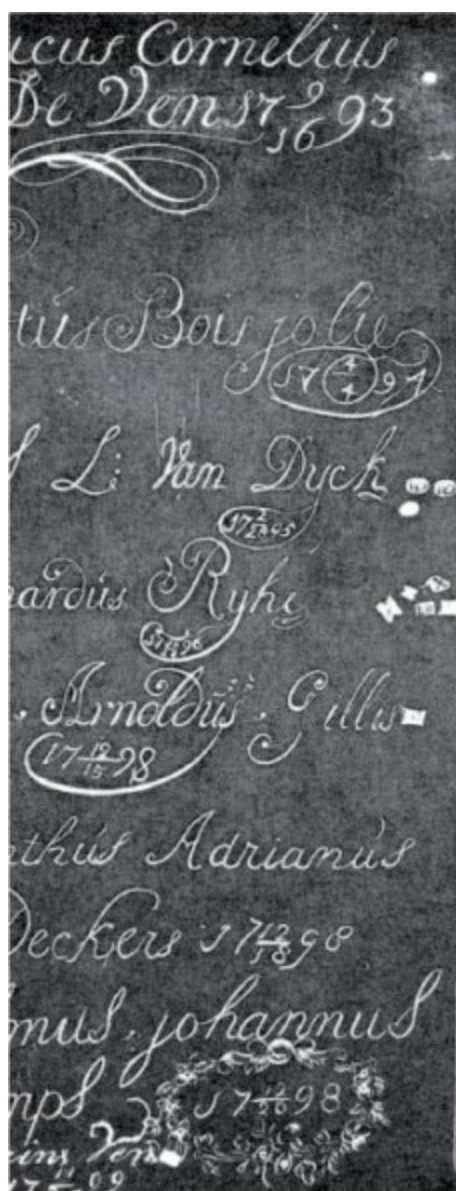 icus Cornelius
De Ven 17 9/16 93
tus Bois jolie
17 4/4 97
S L: Van Dyck
17 2/28 95
nardus Ryhe
. Arnoldus . Gillis
17 12/15 98
nthus Adrianus
Deckers 17 12/18 98
mus . johannus
mps 17 12/26 98
Ven